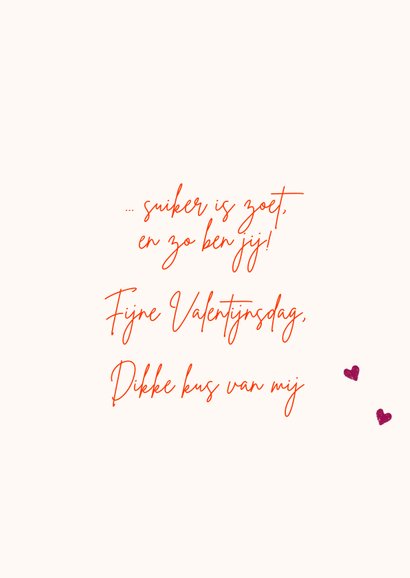 ... suiker is zoet,
en zo ben jij!
Fijne Valentijnsdag,
Dikke kus van mij